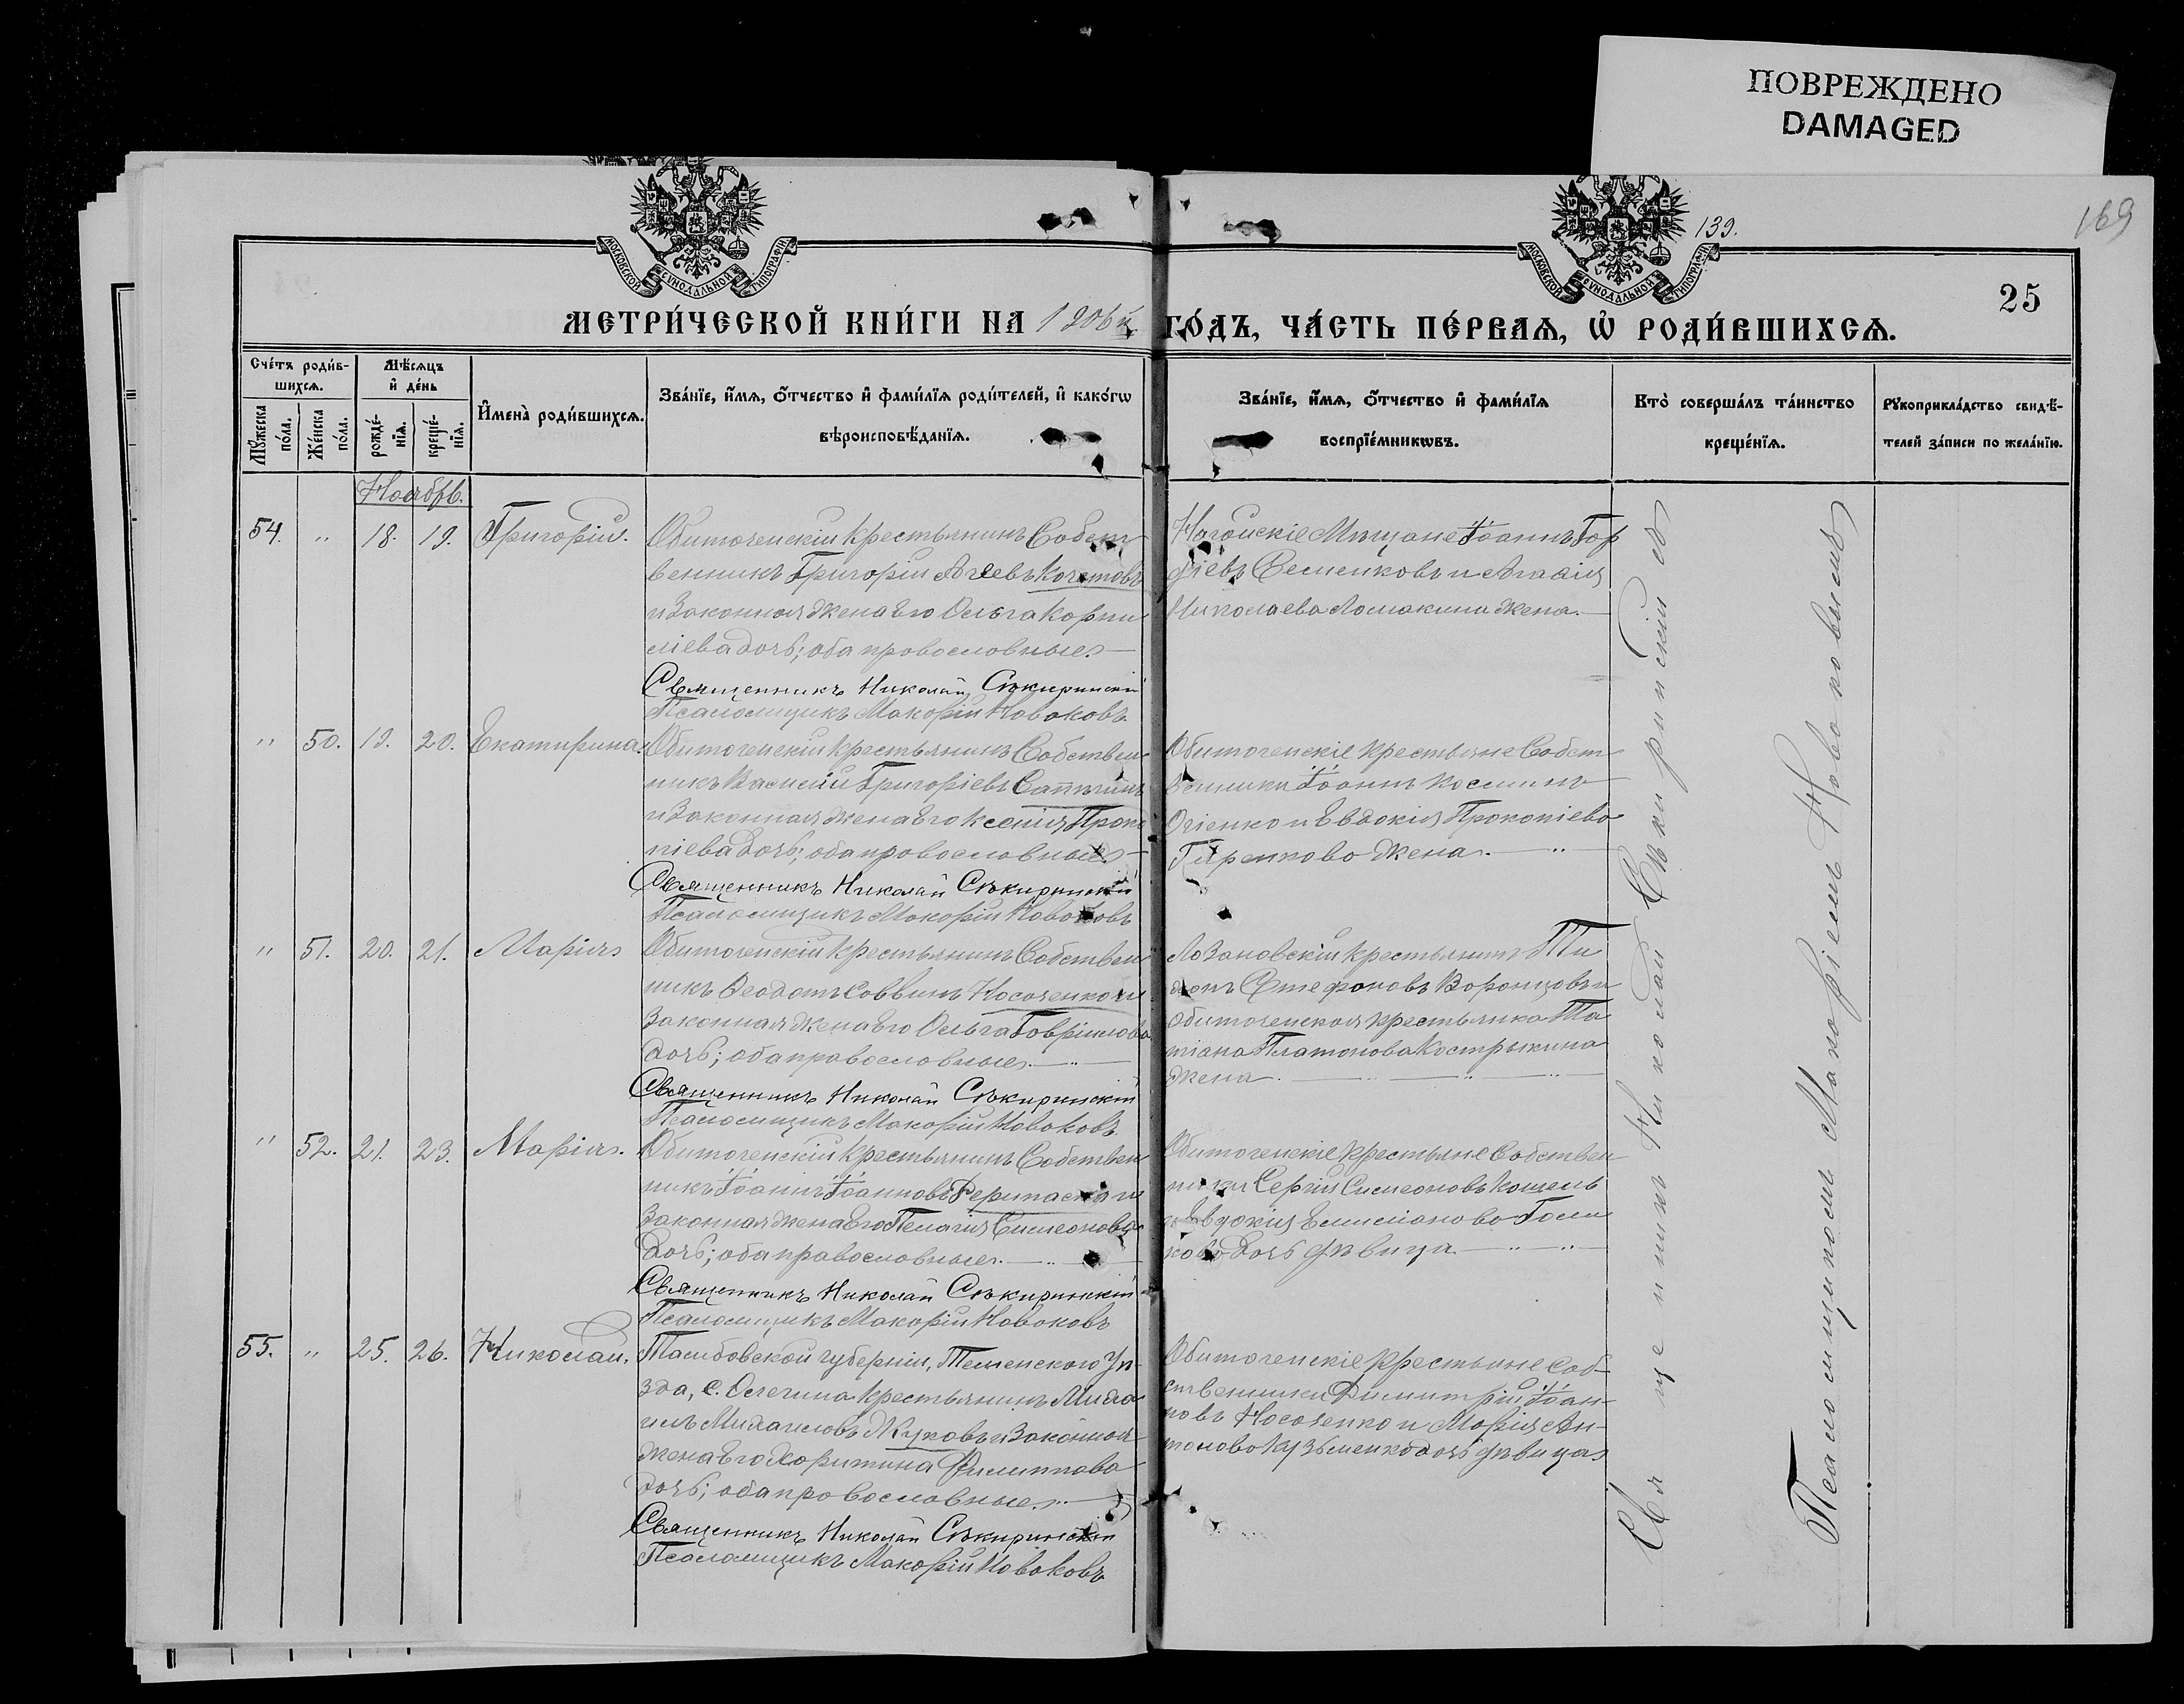 ПОВРЕЖДЕНО
DAMAGED
169
139.
МОСКОВСКОЙ СѴНОДАЛЬНОЙ ТИПОГРАФІИ
МОСКОВСКОЙ СѴНОДАЛЬНОЙ ТИПОГРАФІИ
25
МЕТРИ́ЧЕСКОЙ КНИ́ГИ НА 1906й ГО́ДЪ, ЧА́СТЬ ПЕ́РВАЯ, Ѡ РОДИ́ВШИХСЯ.
Сче́тъ роди́в-
шихся.
Мѣ́сяцъ
и де́нь
Мꙋ́жеска по́ла.
Же́нска по́ла.
рожде́-
нїя.
креще́-
нїя.
И҆мена̀ роди́вшихся.
Зва́нїе, и҆́мя, ѻ҆́тчество и҆ фами́лїя роди́телей, и҆ како́гѡ
вѣроисповѣ́данїя.
Зва́нїе, и҆́мя, ѻ҆́тчество и҆ фами́лїя
воспрїе́мникѡвъ.
Кто̀ соверша́лъ та́инство
креще́нїя.
Рꙋкоприкла́дство свидѣ́-
телей за́писи по жела́нїю.
Ноябрь.
54. " 18. 19. Григорій.
Обиточенскій крестьянинъ Собст
венникъ Григорій Агеевъ Кочетовъ
и Законная жена Его Ольга Корни
ліева дочь; оба православные.
Священникъ Николай Сѣкиринскій
Псаломщикъ Макарій Новаковъ
Ногайскіе Мѣщане Іоаннъ Гор
діевъ Семенковъ и Агафія
Николаева Ломакина жена.
" 50. 19. 20. Екатирина.
Обиточенскій крестьянинъ Собствен
никъ Василій Григоріевъ
и Законная жена Его Ксенія Проко
піева дочь; оба православные.
Священникъ Николай Сѣкиринскій
Псаломщикъ Макарій Новаковъ
Обиточенскіе крестьяне Собст
венники Іоаннъ Косминъ
Огіенко и Евдокія Прокопіева
жена.
" 51. 20. 21. Марія
Обиточенскій крестьянинъ Собствен
никъ Ѳеодотъ Саввинъ Носаченко и
Законная жена Его Ольга Гавріилова
дочь; оба православные.
Священникъ Николай Сѣкиринскій
Псаломщикъ Макарій Новаковъ
Лозановскій крестьянинъ Ти
хонъ Стефановъ Воронцовъ и
Обиточенская крестьянка Та
тіана Платонова Кострыкина
жена.
" 52. 21. 23. Марія.
Обиточенскій крестьянинъ Собствен
никъ Іоаннъ Іоанновъ Дерипаска и
Законная жена Его Пелагія Симеонова
дочь; оба православные.
Священникъ Николай Сѣкиринскій
Псаломщикъ Макарій Новаковъ
Обиточенскіе крестьяне Собствен
ники Сергій Симеоновъ Кошель
и Евдокія Емиліанова
дочь дѣвица.
55. " 25. 26. Николай.
Тамбовской губерніи, Уѣ-
зда, с. крестьянинъ Миха
илъ Михаиловъ Жуковъ и Законная
жена Его Харитина Филиппова
дочь; оба православные.
Священникъ Николай Сѣкиринскій
Псаломщикъ Макарій Новаковъ
Обиточенскіе крестьяне Соб-
ственники Димитрій Іоан-
новъ Носаченко и Марія Ан-
тонова Кузьменко дочь дѣвица
Священникъ Николай Сѣкиринскій съ
Псаломщикомъ Макаріемъ Новаковымъ